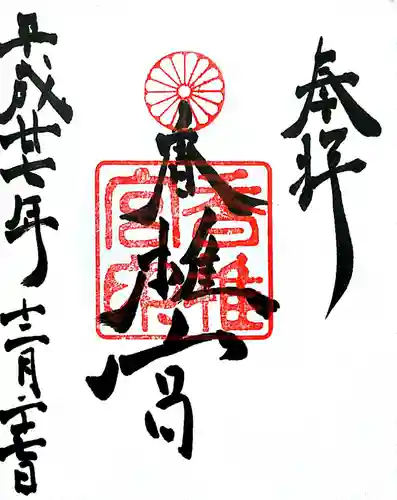 奉拝
香椎宮
香椎宮印
平成廿七年十二月二十七日